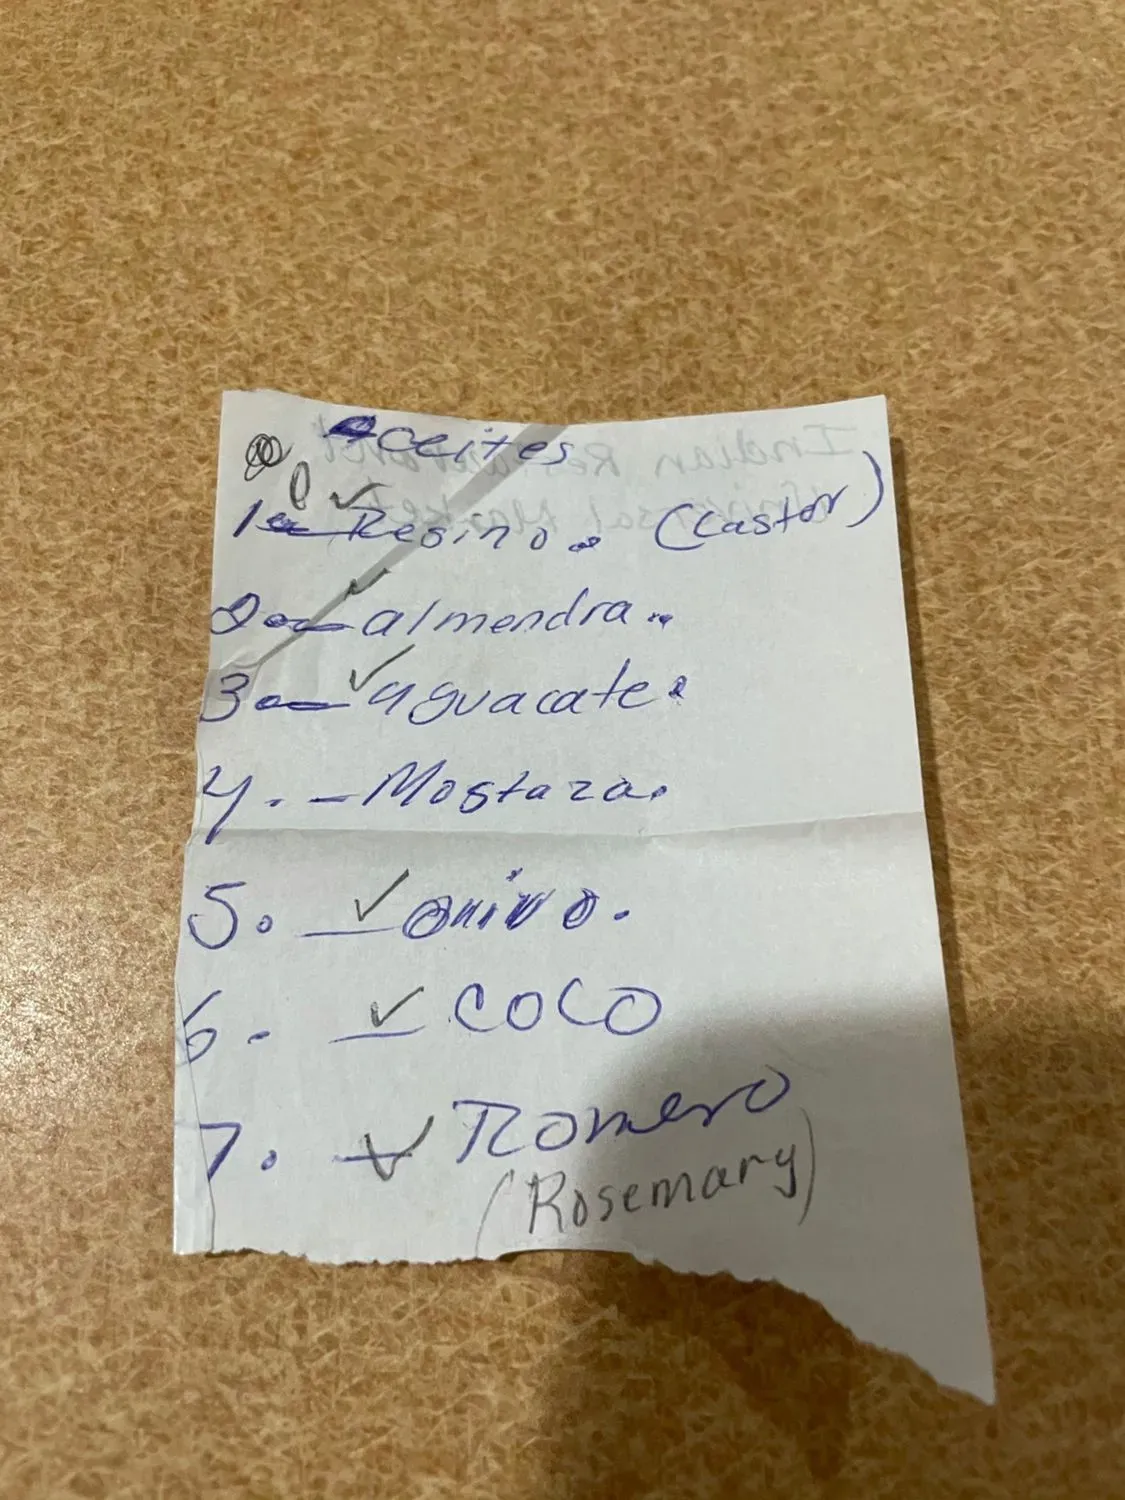 Aceites
1. Resino. (Castor)
2. - almendra.
3. - aguacate.
4. - Mostaza.
5. -
6. - COCO
7. - Romero
(Rosemary)
Indian Restaurant
Universal Market